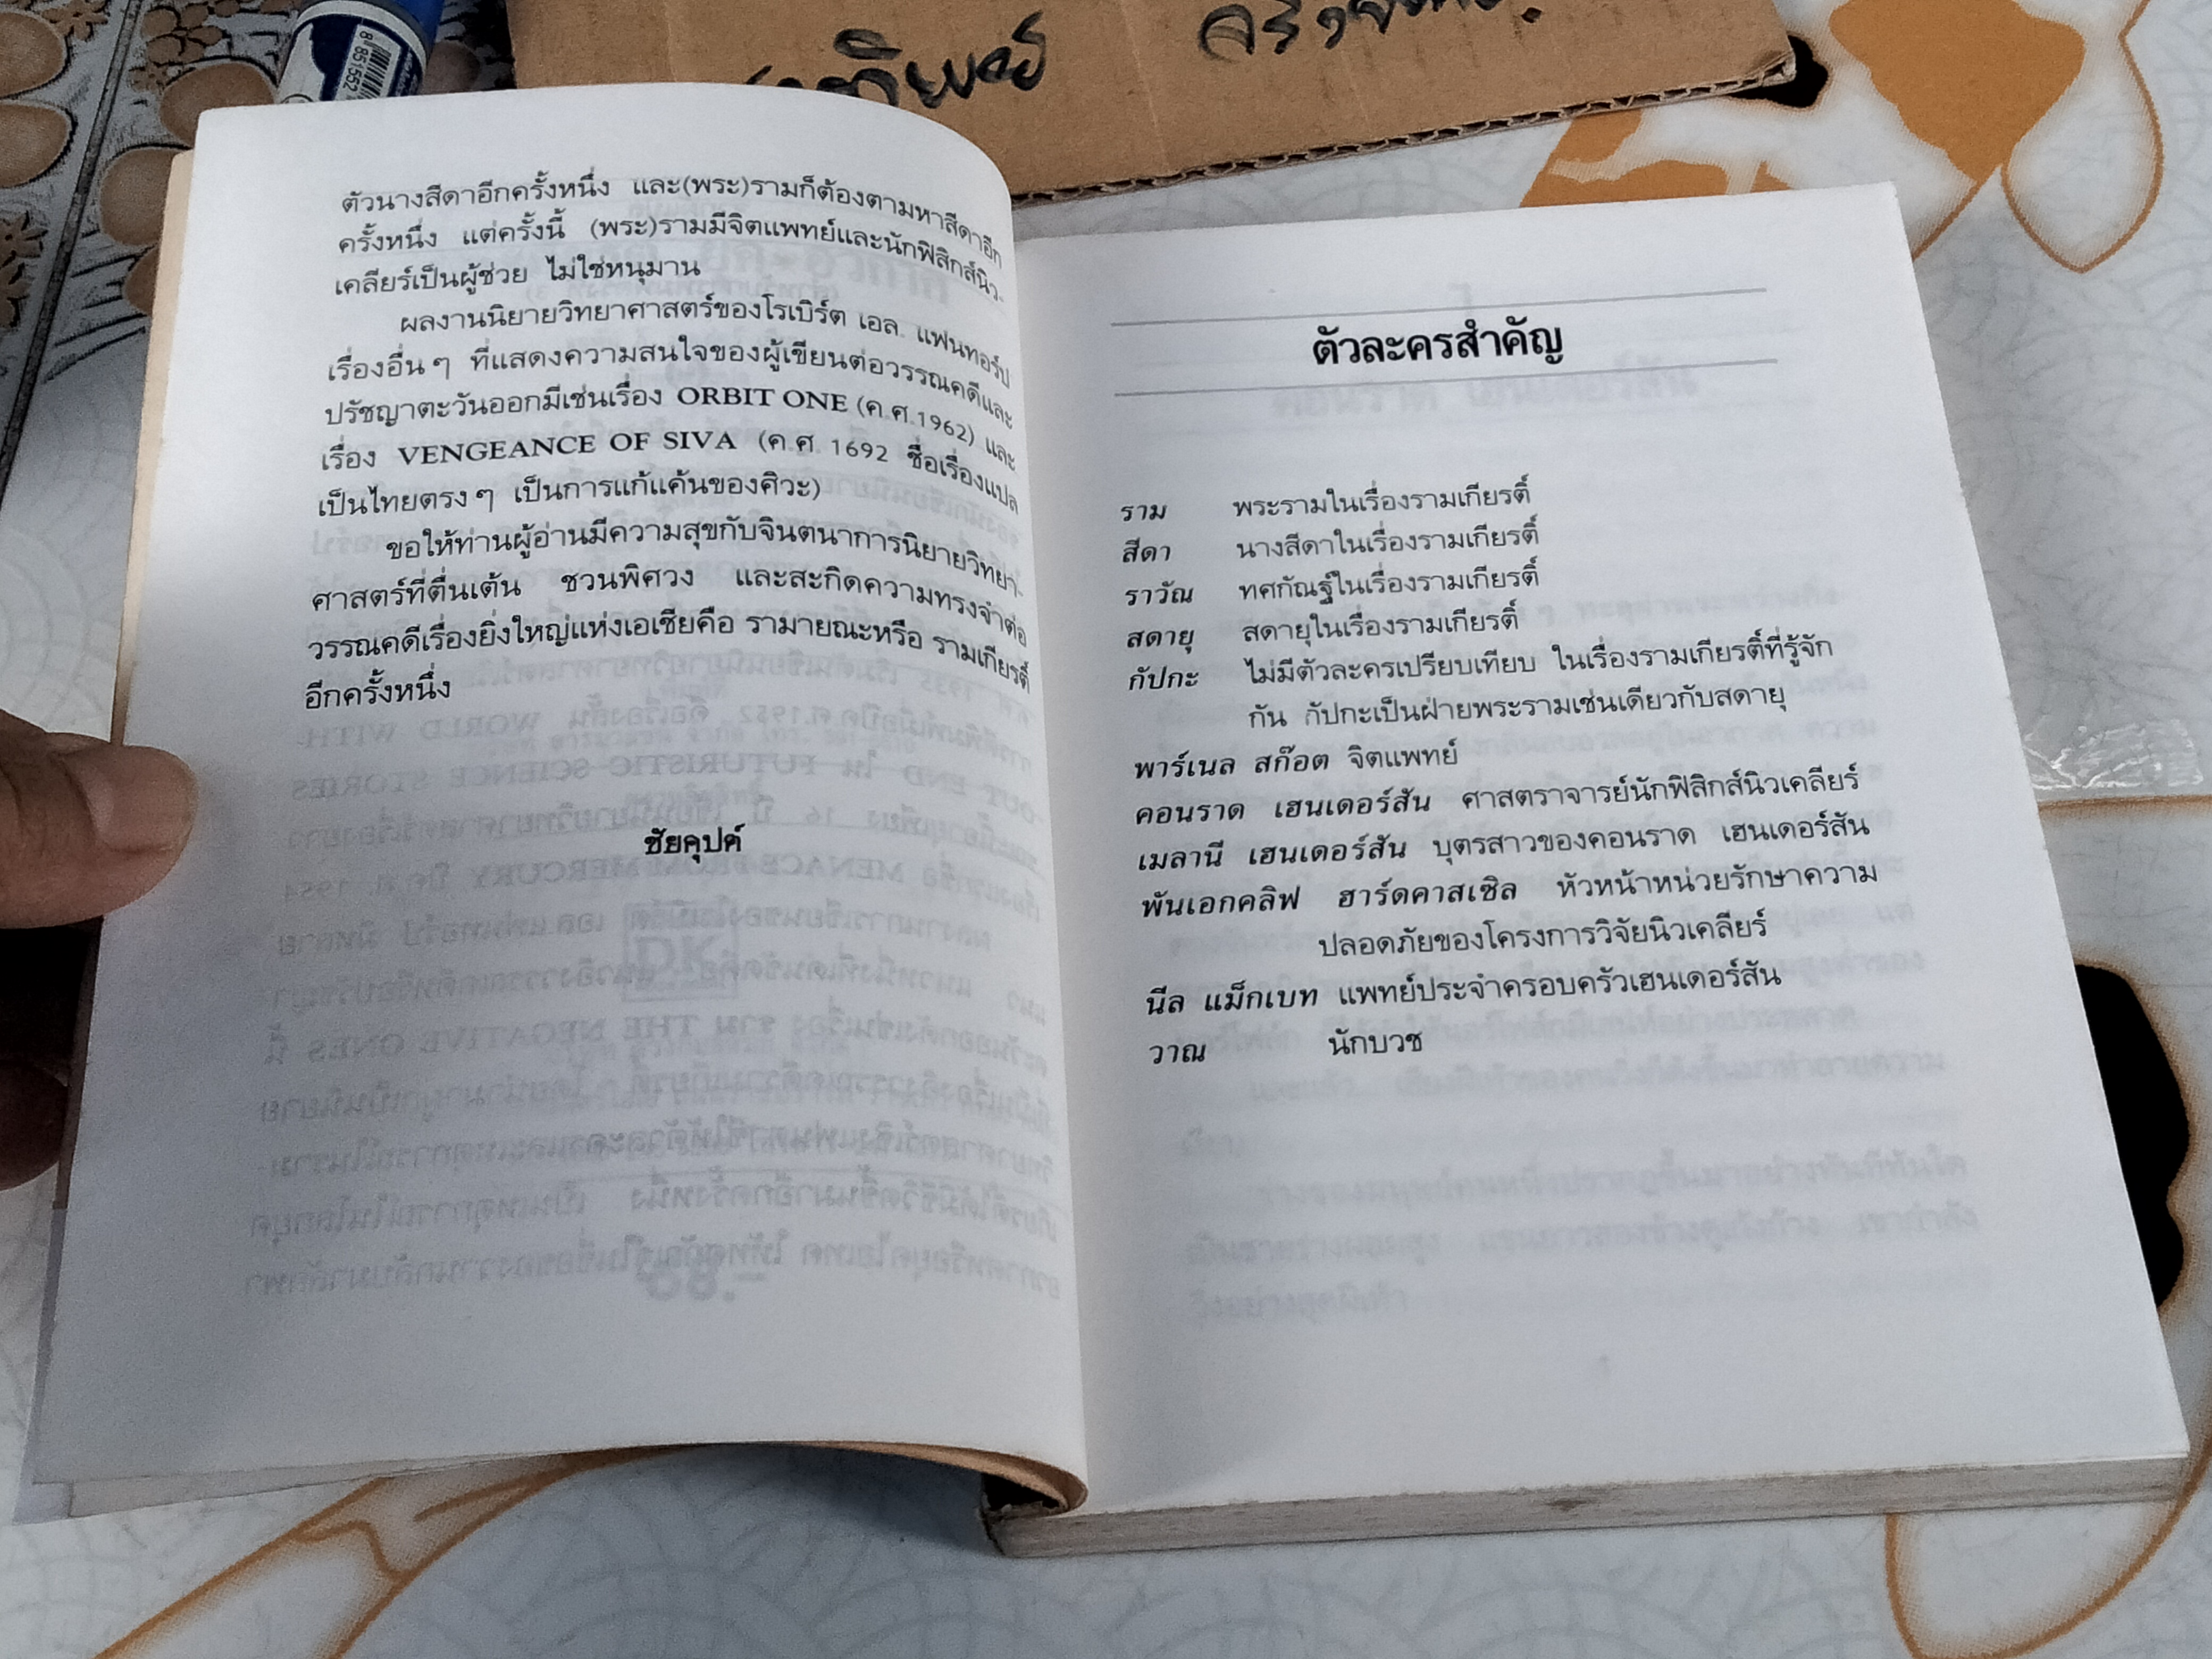 8 851552
ตัวนางสีดาอีกครั้งหนึ่ง และ(พระ)รามก็ต้องตามหาสีดาอีก
ครั้งหนึ่ง แต่ครั้งนี้ (พระ)รามมีจิตแพทย์และนักฟิสิกส์นิว-
เคลียร์เป็นผู้ช่วย ไม่ใช่หนุมาน
ผลงานนิยายวิทยาศาสตร์ของโรเบิร์ต เอล. แฟนทอร์ป
เรื่องอื่น ๆ ที่แสดงความสนใจของผู้เขียนต่อวรรณคดีและ
ปรัชญาตะวันออกมีเช่นเรื่อง ORBIT ONE (ค.ศ.1962) และ
เรื่อง VENGEANCE OF SIVA (ค.ศ 1692 ชื่อเรื่องแปล
เป็นไทยตรง ๆ เป็นการแก้แค้นของศิวะ)
ขอให้ท่านผู้อ่านมีความสุขกับจินตนาการนิยายวิทยา-
ศาสตร์ที่ตื่นเต้น ชวนพิศวง และสะกิดความทรงจำต่อ
วรรณคดีเรื่องยิ่งใหญ่แห่งเอเซียคือ รามายณะหรือ รามเกียรติ์
อีกครั้งหนึ่ง
ชัยคุปต์
ตัวละครสำคัญ
ราม พระรามในเรื่องรามเกียรติ์
สีดา นางสีดาในเรื่องรามเกียรติ์
ราวัณ ทศกัณฐ์ในเรื่องรามเกียรติ์
สดายุ สดายุในเรื่องรามเกียรติ์
กัปกะ ไม่มีตัวละครเปรียบเทียบ ในเรื่องรามเกียรติ์ที่รู้จัก
กัน กัปกะเป็นฝ่ายพระรามเช่นเดียวกับสดายุ
พาร์เนล สก๊อต จิตแพทย์
คอนราด เฮนเดอร์สัน ศาสตราจารย์นักฟิสิกส์นิวเคลียร์
เมลานี เฮนเดอร์สัน บุตรสาวของคอนราด เฮนเดอร์สัน
พันเอกคลิฟ ฮาร์ดคาสเซิล หัวหน้าหน่วยรักษาความ
ปลอดภัยของโครงการวิจัยนิวเคลียร์
นีล แม็กเบท แพทย์ประจำครอบครัวเฮนเดอร์สัน
วาณ นักบวช